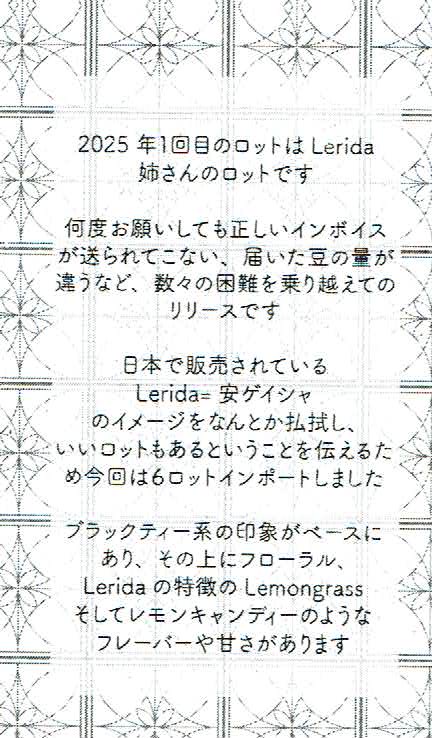 2025 年1回目のロットは Lerida
姉さんのロットです
何度お願いしても正しいインボイス
が送られてこない、届いた豆の量が
違うなど、数々の困難を乗り越えての
リリースです
日本で販売されている
Lerida= 安ゲイシャ
のイメージをなんとか払拭し、
いいロットもあるということを伝えるた
め今回は6ロットインポートしました
ブラックティー系の印象がベースに
あり、その上にフローラル、
Lerida の特徴の Lemongrass
そしてレモンキャンディーのような
フレーバーや甘さがあります